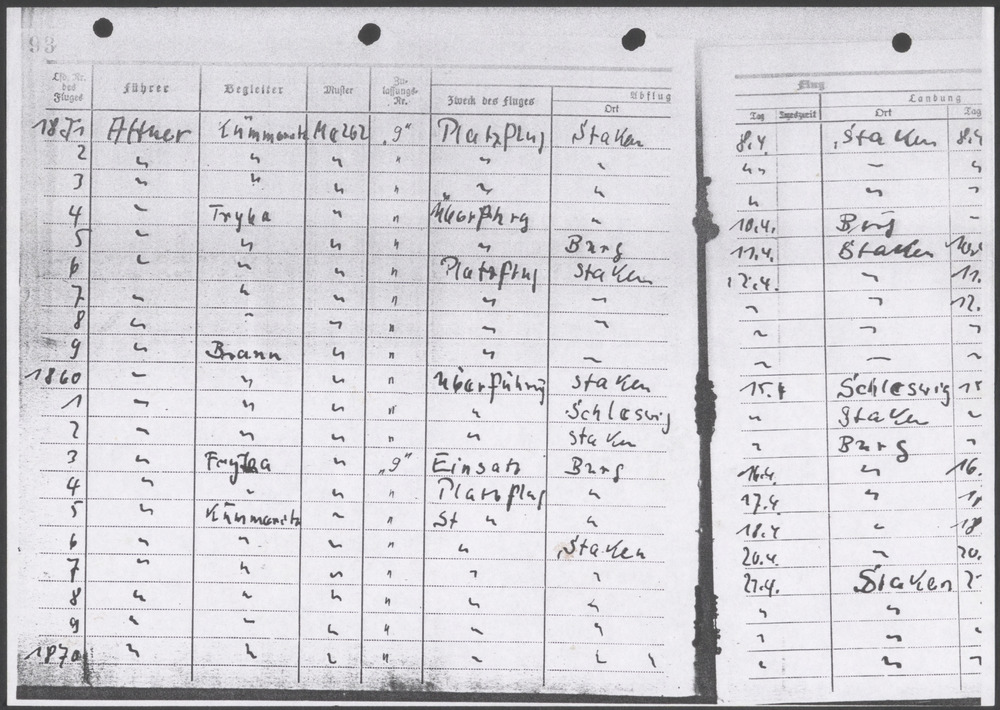 93
Lfd. Nr. des Fluges Führer Begleiter Muster Zulassungs-Nr. Zweck des Fluges Abflug Ort Flug Tag Tageszeit Landung Ort Tag
1851 Altner Kümmeritz Me262 „9" Platzflug Staken 8.4. Staken 8.4
2 " " " " " " " " "
3 " " " " " " " " "
4 " Tryba " " Überfhrg " 10.4. Burg
5 " " " " " Burg 11.4. Staken 10.4
6 " " " " Platzflug Staken 12.4. " 11.
7 " " " " " " " " 12.
8 " " " " " " " " "
9 " Braun " " " " " " "
1860 " " " " Überführung Staken 15.4 Schleswig 15
1 " " " " " Schleswig " Staken "
2 " " " " " Staken " Burg "
3 " " „9" Einsatz Burg 16.4. " 16.
4 " " " " Platzflug " 17.4. "
5 " Kümmeritz " " St " " 18.4 " 18
6 " " " " " Staken 20.4. " 20.
7 " " " " " " 21.4. Staken
8 " " " " " " " " "
9 " " " " " " " " "
1870 " " " " " " " " "